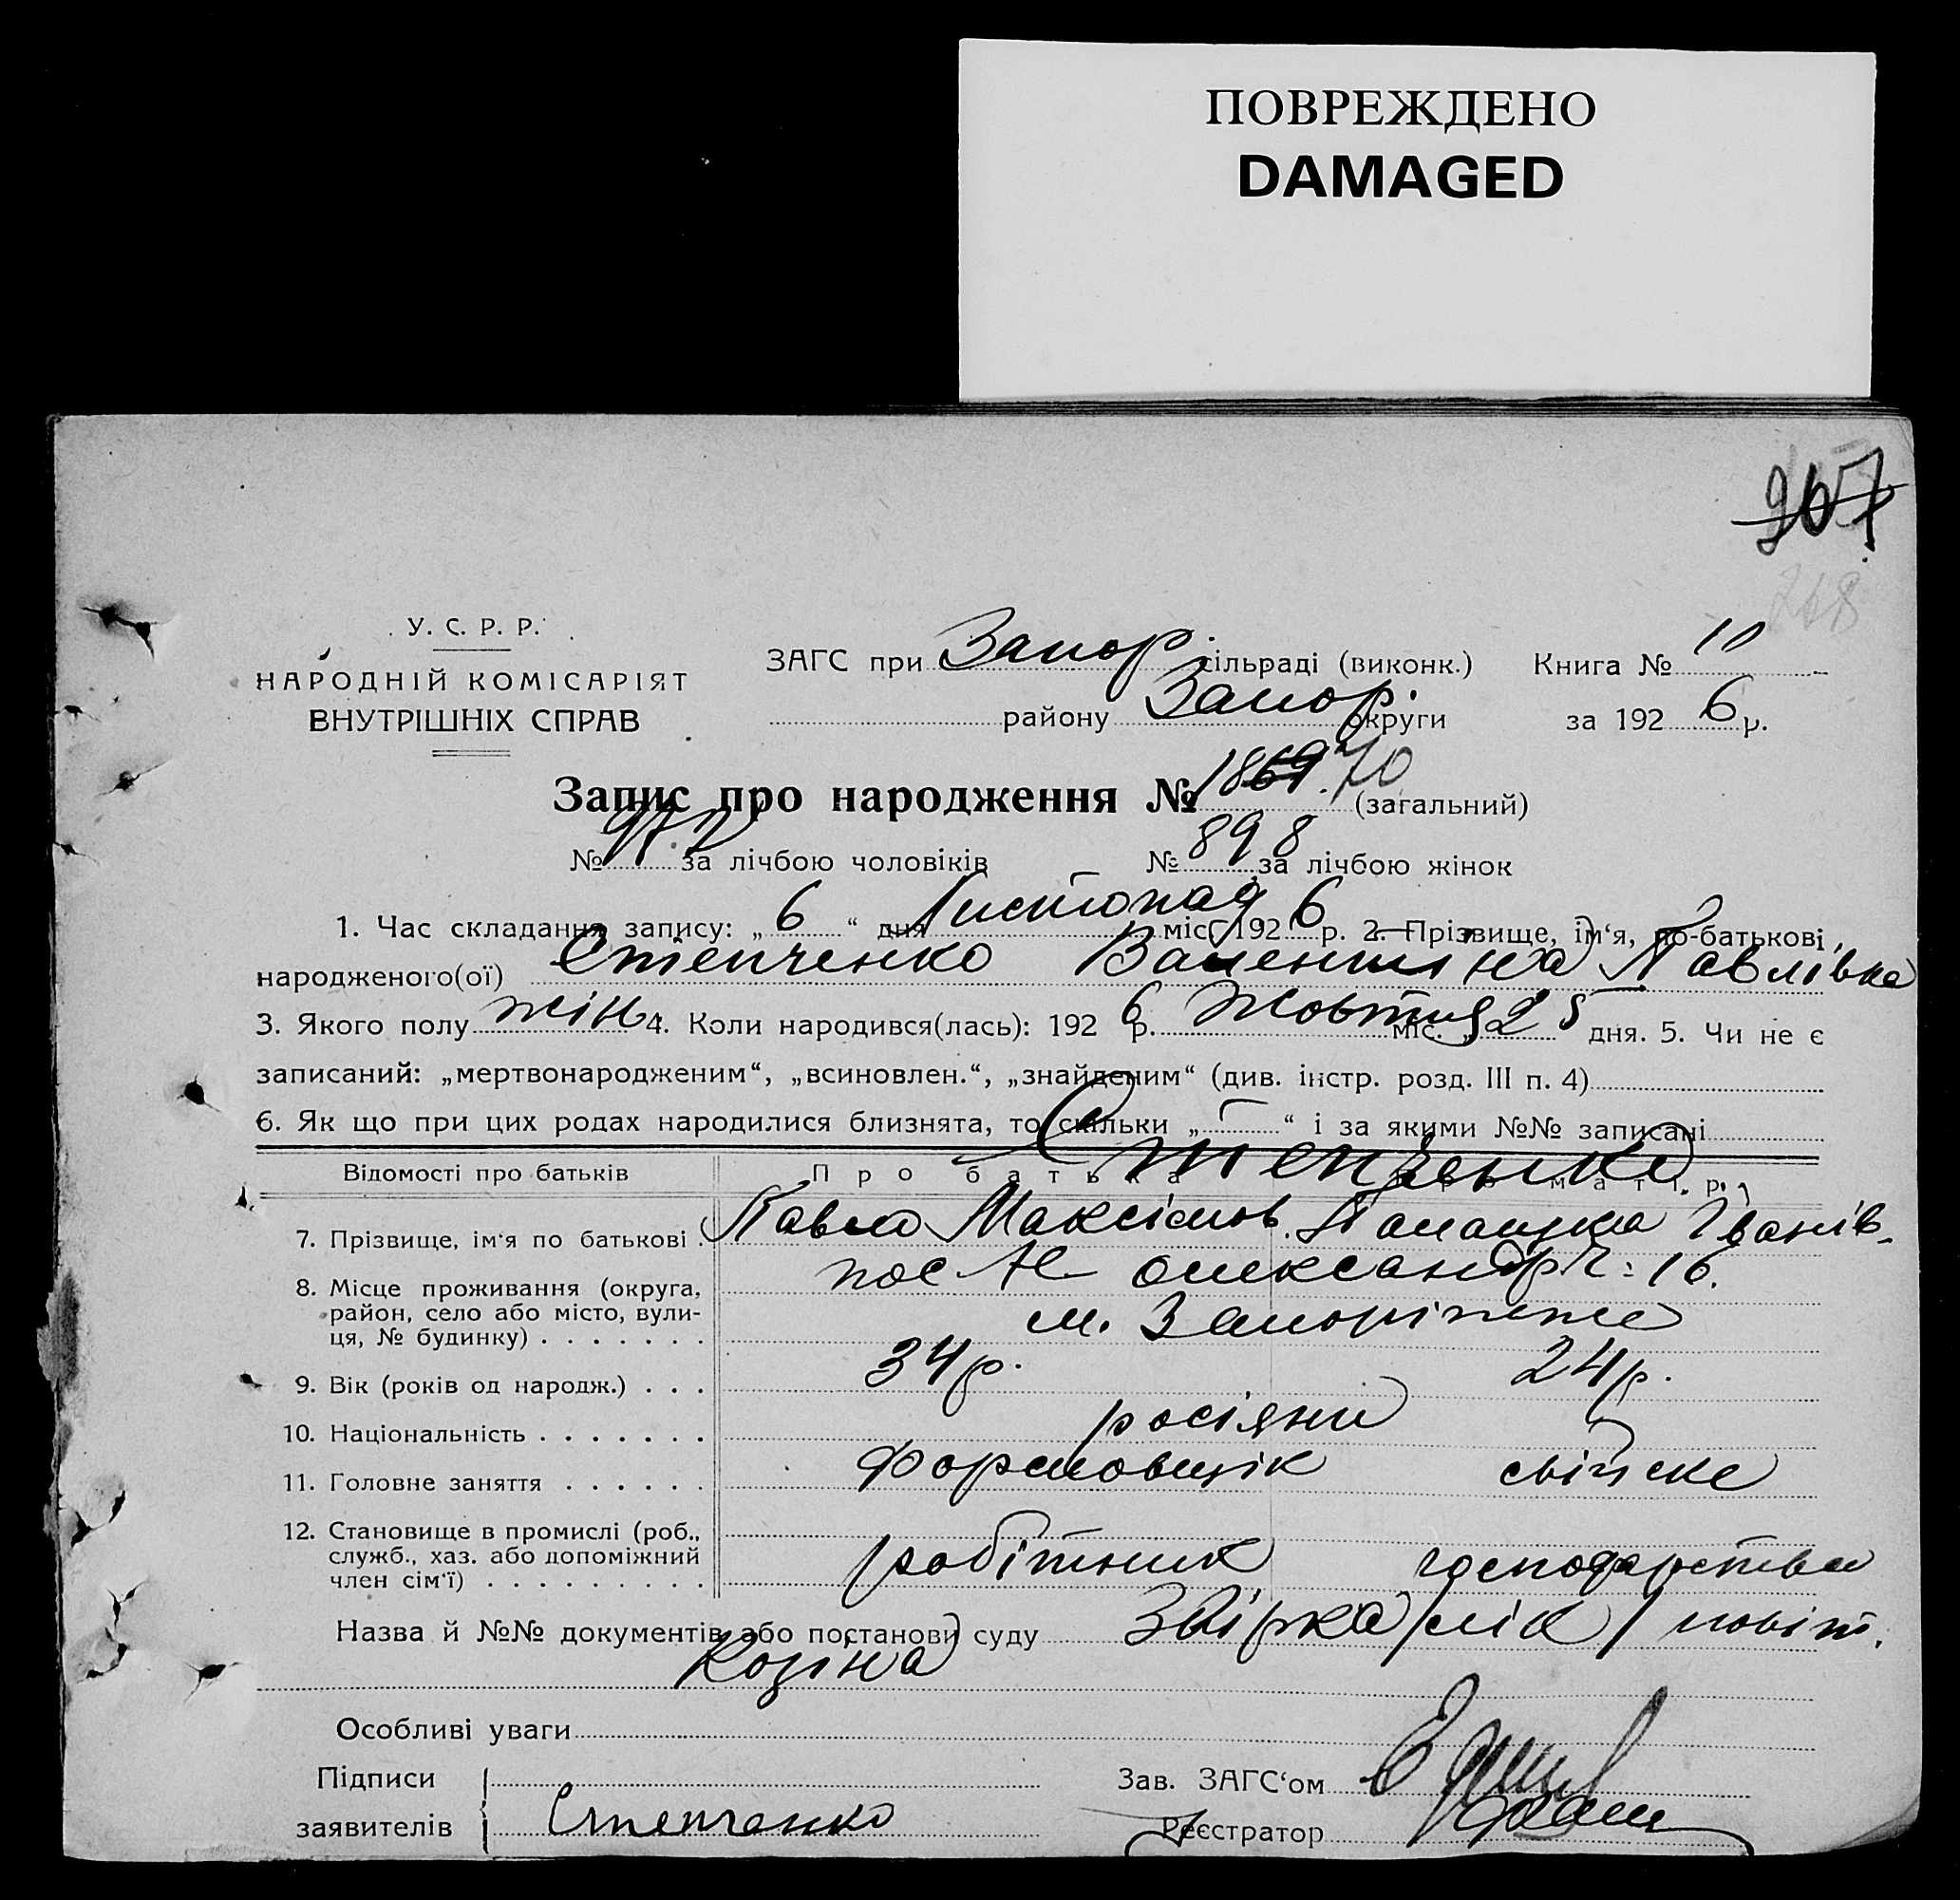 ПОВРЕЖДЕНО
DAMAGED
267
268
У. С. Р. Р.
НАРОДНІЙ КОМІСАРІЯТ
ВНУТРІШНІХ СПРАВ
ЗАГС при Запор. сільраді (виконк.) Книга №
району Запор. округи за 1926 р.
Запис про народження № 1869.70 (загальний)
№ 972 за лічбою чоловіків № 898 за лічбою жінок
1. Час складання запису: „6“ дня Листопад міс. 1926 р. 2. Прізвище, ім'я, по-батькові,
народженого(ої) Степченко Валентіна Павлівна
3. Якого полу жін. 4. Коли народився(лась): 1926 р. Жовтня міс. „25 дня. 5. Чи не є
записаний: „мертвонародженим“, „всиновлен.“, „знайденим“ (див. інстр. розд. III п. 4)
6. Як що при цих родах народилися близнята, то скільки „ “ і за якими №№ записані
Відомості про батьків Про батька Про матір.
Степченко
7. Прізвище, ім'я по батькові . Павло Максімов. Іванів.
8. Місце проживання (округа,
район, село або місто, вули-
ця, № будинку) . . . . . . .
пос. Олександр. 16.
м. Запоріжже
9. Вік (років од народж.) . . . 34 р. 24 р.
10. Національність . . . . . . . росіяни
11. Головне заняття . . . . . . формовщік свійске
12. Становище в промислі (роб.,
служб., хаз. або допоміжний
член сім'ї) . . . . . . . . . робітник господарство
Назва й №№ документів або постанови суду Звірка /лік/ повіт.
Козіна
Особливі уваги
Підписи
заявителів Степченко
Зав. ЗАГС'ом
Реєстратор